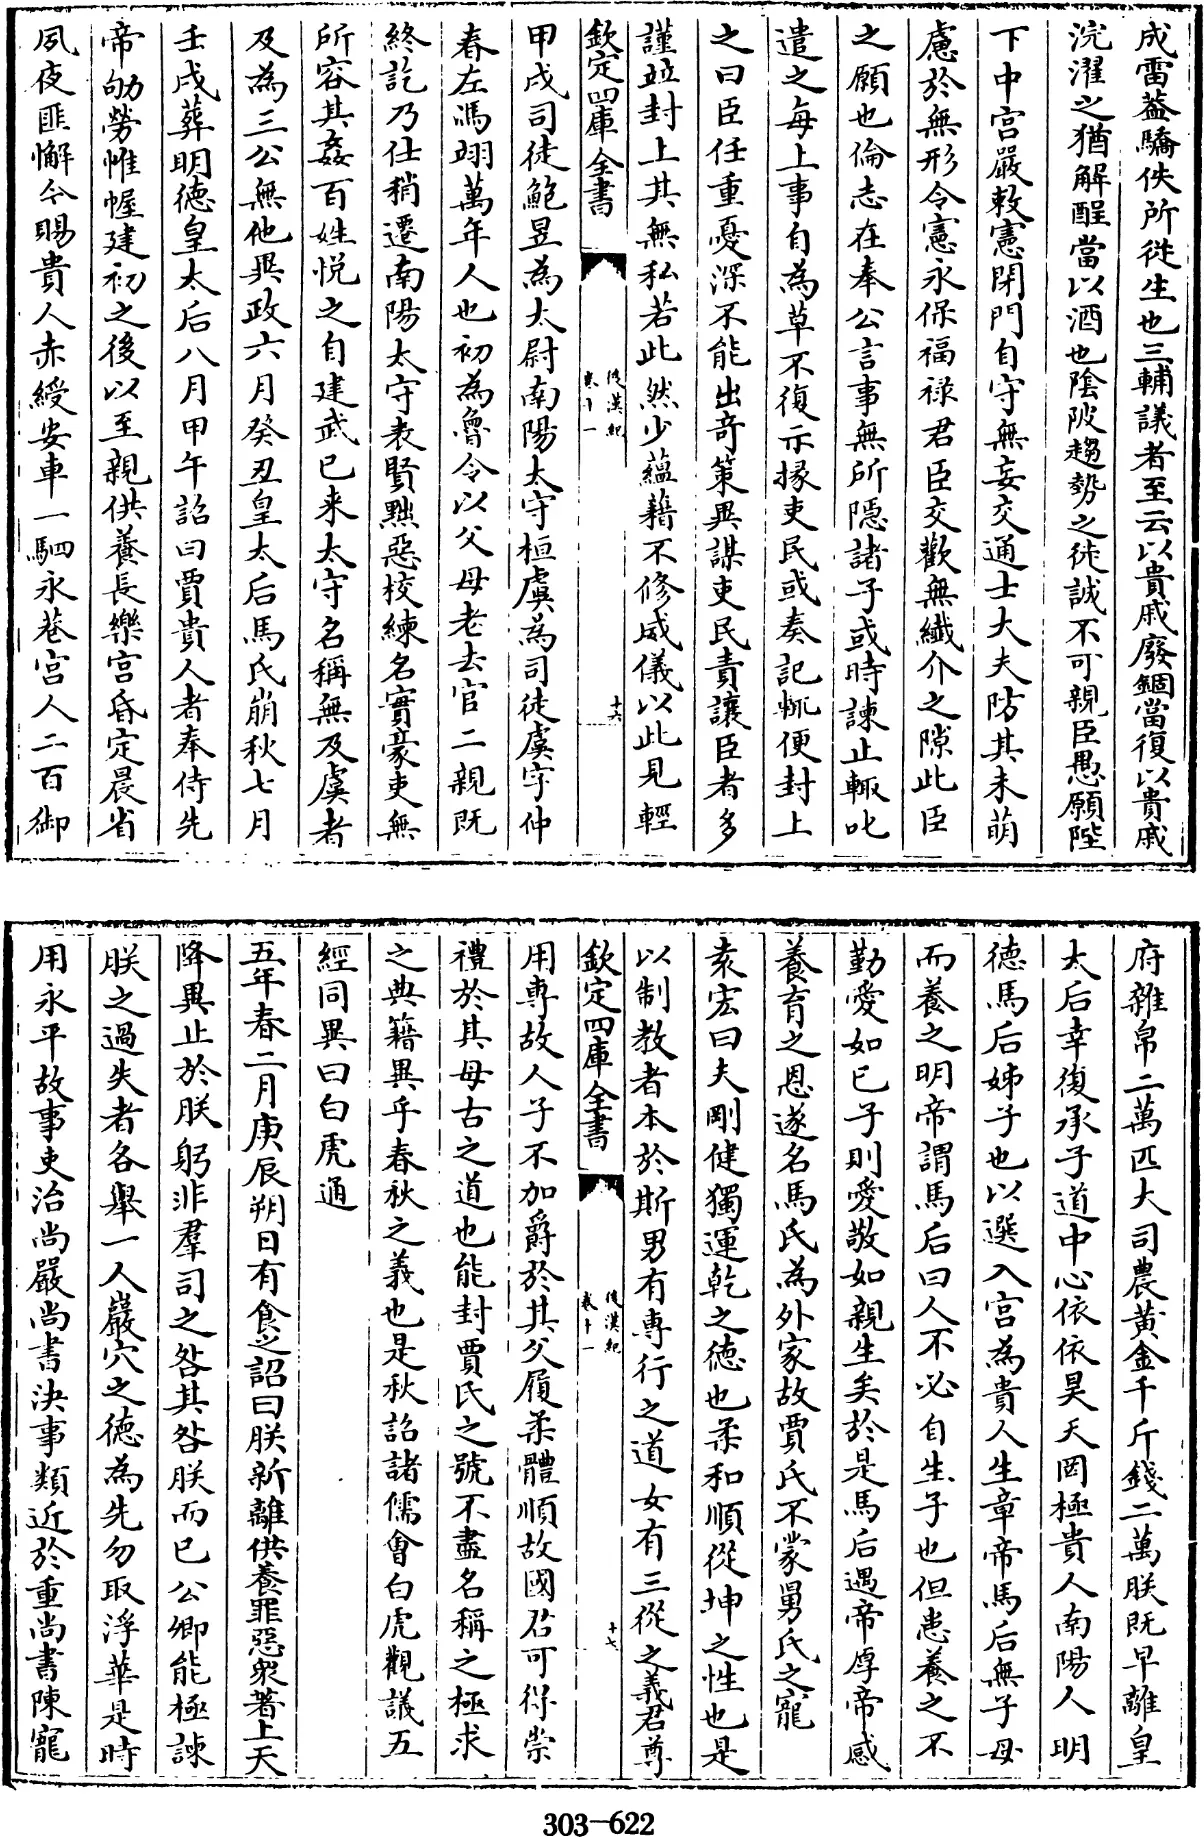 成雷葢驕佚所從生也三輔議者至云以貴戚廢錮當復以貴戚
浣濯之猶解酲當以酒也隂陂趨勢之徒誠不可親臣愚願陛
下中宫嚴敕憲閉門自守無妄交通士大夫防其未萌
慮於無形令憲永保福禄君臣交歡無纎介之隙此臣
之願也倫志在奉公言事無所隠諸子或時諫止輙叱
遣之每上事自為草不復示掾吏民或奏記輙便封上
之曰臣任重憂深不能出奇策異謀吏民責讓臣者多
謹竝封上其無私若此然少藴藉不修威儀以此見輕
欽定四庫全書
後漢紀
卷十一
十六
甲戌司徒鮑昱為太尉南陽太守桓虞為司徒虞字仲
春左馮翊萬年人也初為魯令以父母老去官二親既
終訖乃仕稍遷南陽太守表賢黜惡校練名實豪吏無
所容其姦百姓悦之自建武已来太守名稱無及虞者
及為三公無他異政六月癸丑皇太后馬氏崩秋七月
壬戌葬明德皇太后八月甲午詔曰賈貴人者奉侍先
帝劬勞帷幄建初之後以至親供養長樂宫昏定晨省
夙夜匪懈今賜貴人赤綬安車一駟永巷宫人二百御
府雜帛二萬匹大司農黄金千斤錢二萬朕既早離皇
太后幸復承子道中心依依昊天罔極貴人南陽人明
德馬后姊子也以選入宫為貴人生章帝馬后無子母
而養之明帝謂馬后曰人不必自生子也但患養之不
勤愛如已子則愛敬如親生矣於是馬后遇帝厚帝感
養育之恩遂名馬氏為外家故賈氏不蒙舅氏之寵
袁宏曰夫剛健獨運乾之徳也柔和順從坤之性也是
以制教者本於斯男有專行之道女有三從之義君尊
欽定四庫全書
後漢紀
卷十一
十七
用專故人子不加爵於其父履柔體順故國君可得崇
禮於其母古之道也能封賈氏之號不盡名稱之極求
之典籍異乎春秋之義也是秋詔諸儒會白虎觀議五
經同異曰白虎通
五年春二月庚辰朔日有食之詔曰朕新離供養罪惡衆著上天
降異止於朕躬非羣司之咎其咎朕而已公卿能極諫
朕之過失者各舉一人巖穴之徳為先勿取浮華是時
用永平故事吏治尚嚴尚書決事類近於重尚書陳寵
303-622